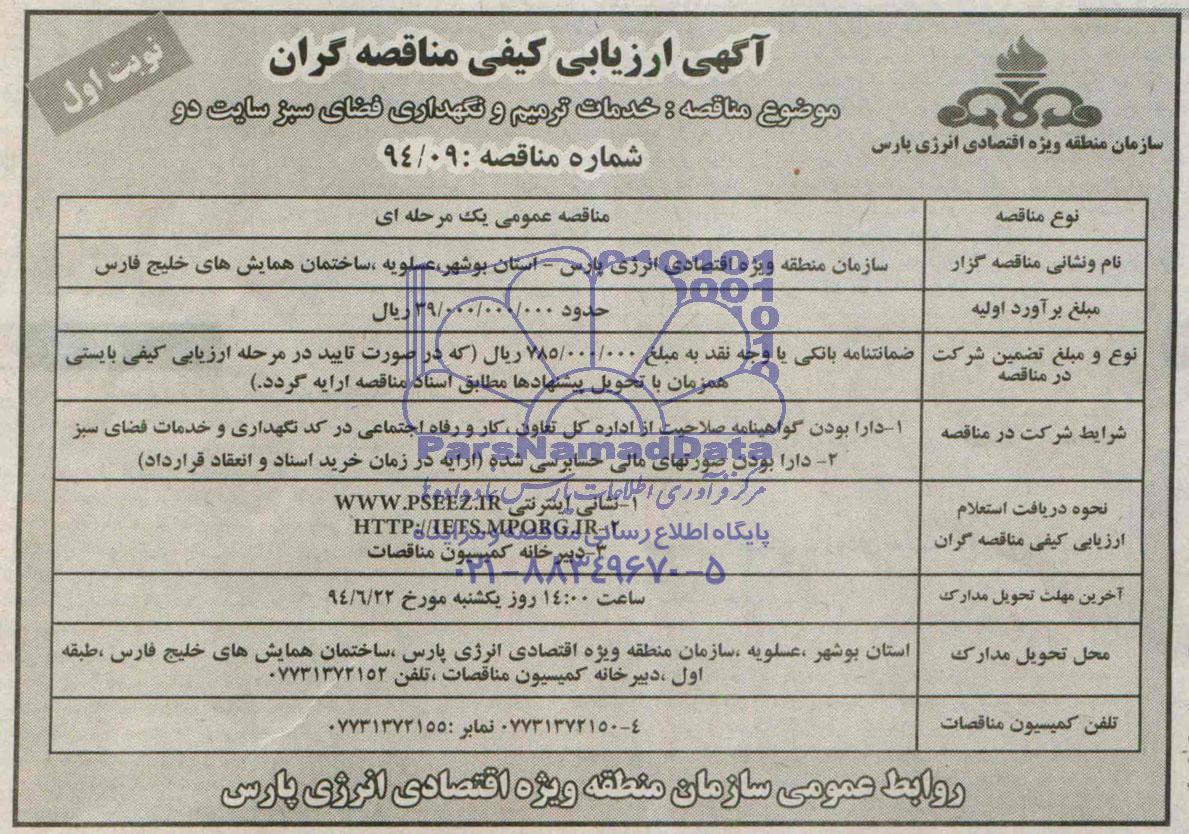 نوبت اول
آگهی ارزیابی کیفی مناقصه گران
موضوع مناقصه : خدمات ترمیم و نگهداری فضای سبز سایت دو
شماره مناقصه :۹۴/۰۹
سازمان منطقه ویژه اقتصادی انرژی پارس
نوع مناقصه
مناقصه عمومی یک مرحله ای
نام ونشانی مناقصه گزار
سازمان منطقه ویژه اقتصادی انرژی پارس – استان بوشهر،عسلویه ،ساختمان همایش های خلیج فارس
مبلغ برآورد اولیه
حدود ۳۹/۰۰۰/۰۰۰/۰۰۰ ریال
نوع و مبلغ تضمین شرکت
در مناقصه
ضمانتنامه بانکی یا وجه نقد به مبلغ ۷۸۵/۰۰۰/۰۰۰ ریال (که در صورت تایید در مرحله ارزیابی کیفی بایستی
همزمان با تحویل پیشنهادها مطابق اسناد مناقصه ارایه گردد.)
شرایط شرکت در مناقصه
۱–دارا بودن گواهینامه صلاحیت از اداره کل تعاون ،کار و رفاه اجتماعی در کد نگهداری و خدمات فضای سبز
۲- دارا بودن صورتهای مالی حسابرسی شده (ارایه در زمان خرید اسناد و انعقاد قرارداد)
نحوه دریافت استعلام
ارزیابی کیفی مناقصه گران
۱–نشانی اینترنتی WWW.PSEEZ.IR
۲–HTTP://IETS.MPORG.IR
۳–دبیرخانه کمیسیون مناقصات
آخرین مهلت تحویل مدارک
ساعت ۱۴:۰۰ روز یکشنبه مورخ ۹۴/۶/۲۲
محل تحویل مدارک
استان بوشهر ،عسلویه ،سازمان منطقه ویژه اقتصادی انرژی پارس ،ساختمان همایش های خلیج فارس ،طبقه
اول ،دبیرخانه کمیسیون مناقصات ،تلفن ۰۷۷۳۱۳۷۲۱۵۲
تلفن کمیسیون مناقصات
۰۷۷۳۱۳۷۲۱۵۰–۴ نمابر :۰۷۷۳۱۳۷۲۱۵۵
روابط عمومی سازمان منطقه ویژه اقتصادی انرژی پارس
ParsNamadData
مرکز فرآوری اطلاعات پارس نماد داده ها
پایگاه اطلاع رسانی مناقصه و مزایده
۰۲۱–۸۸۳۴۹۶۷۰–۵